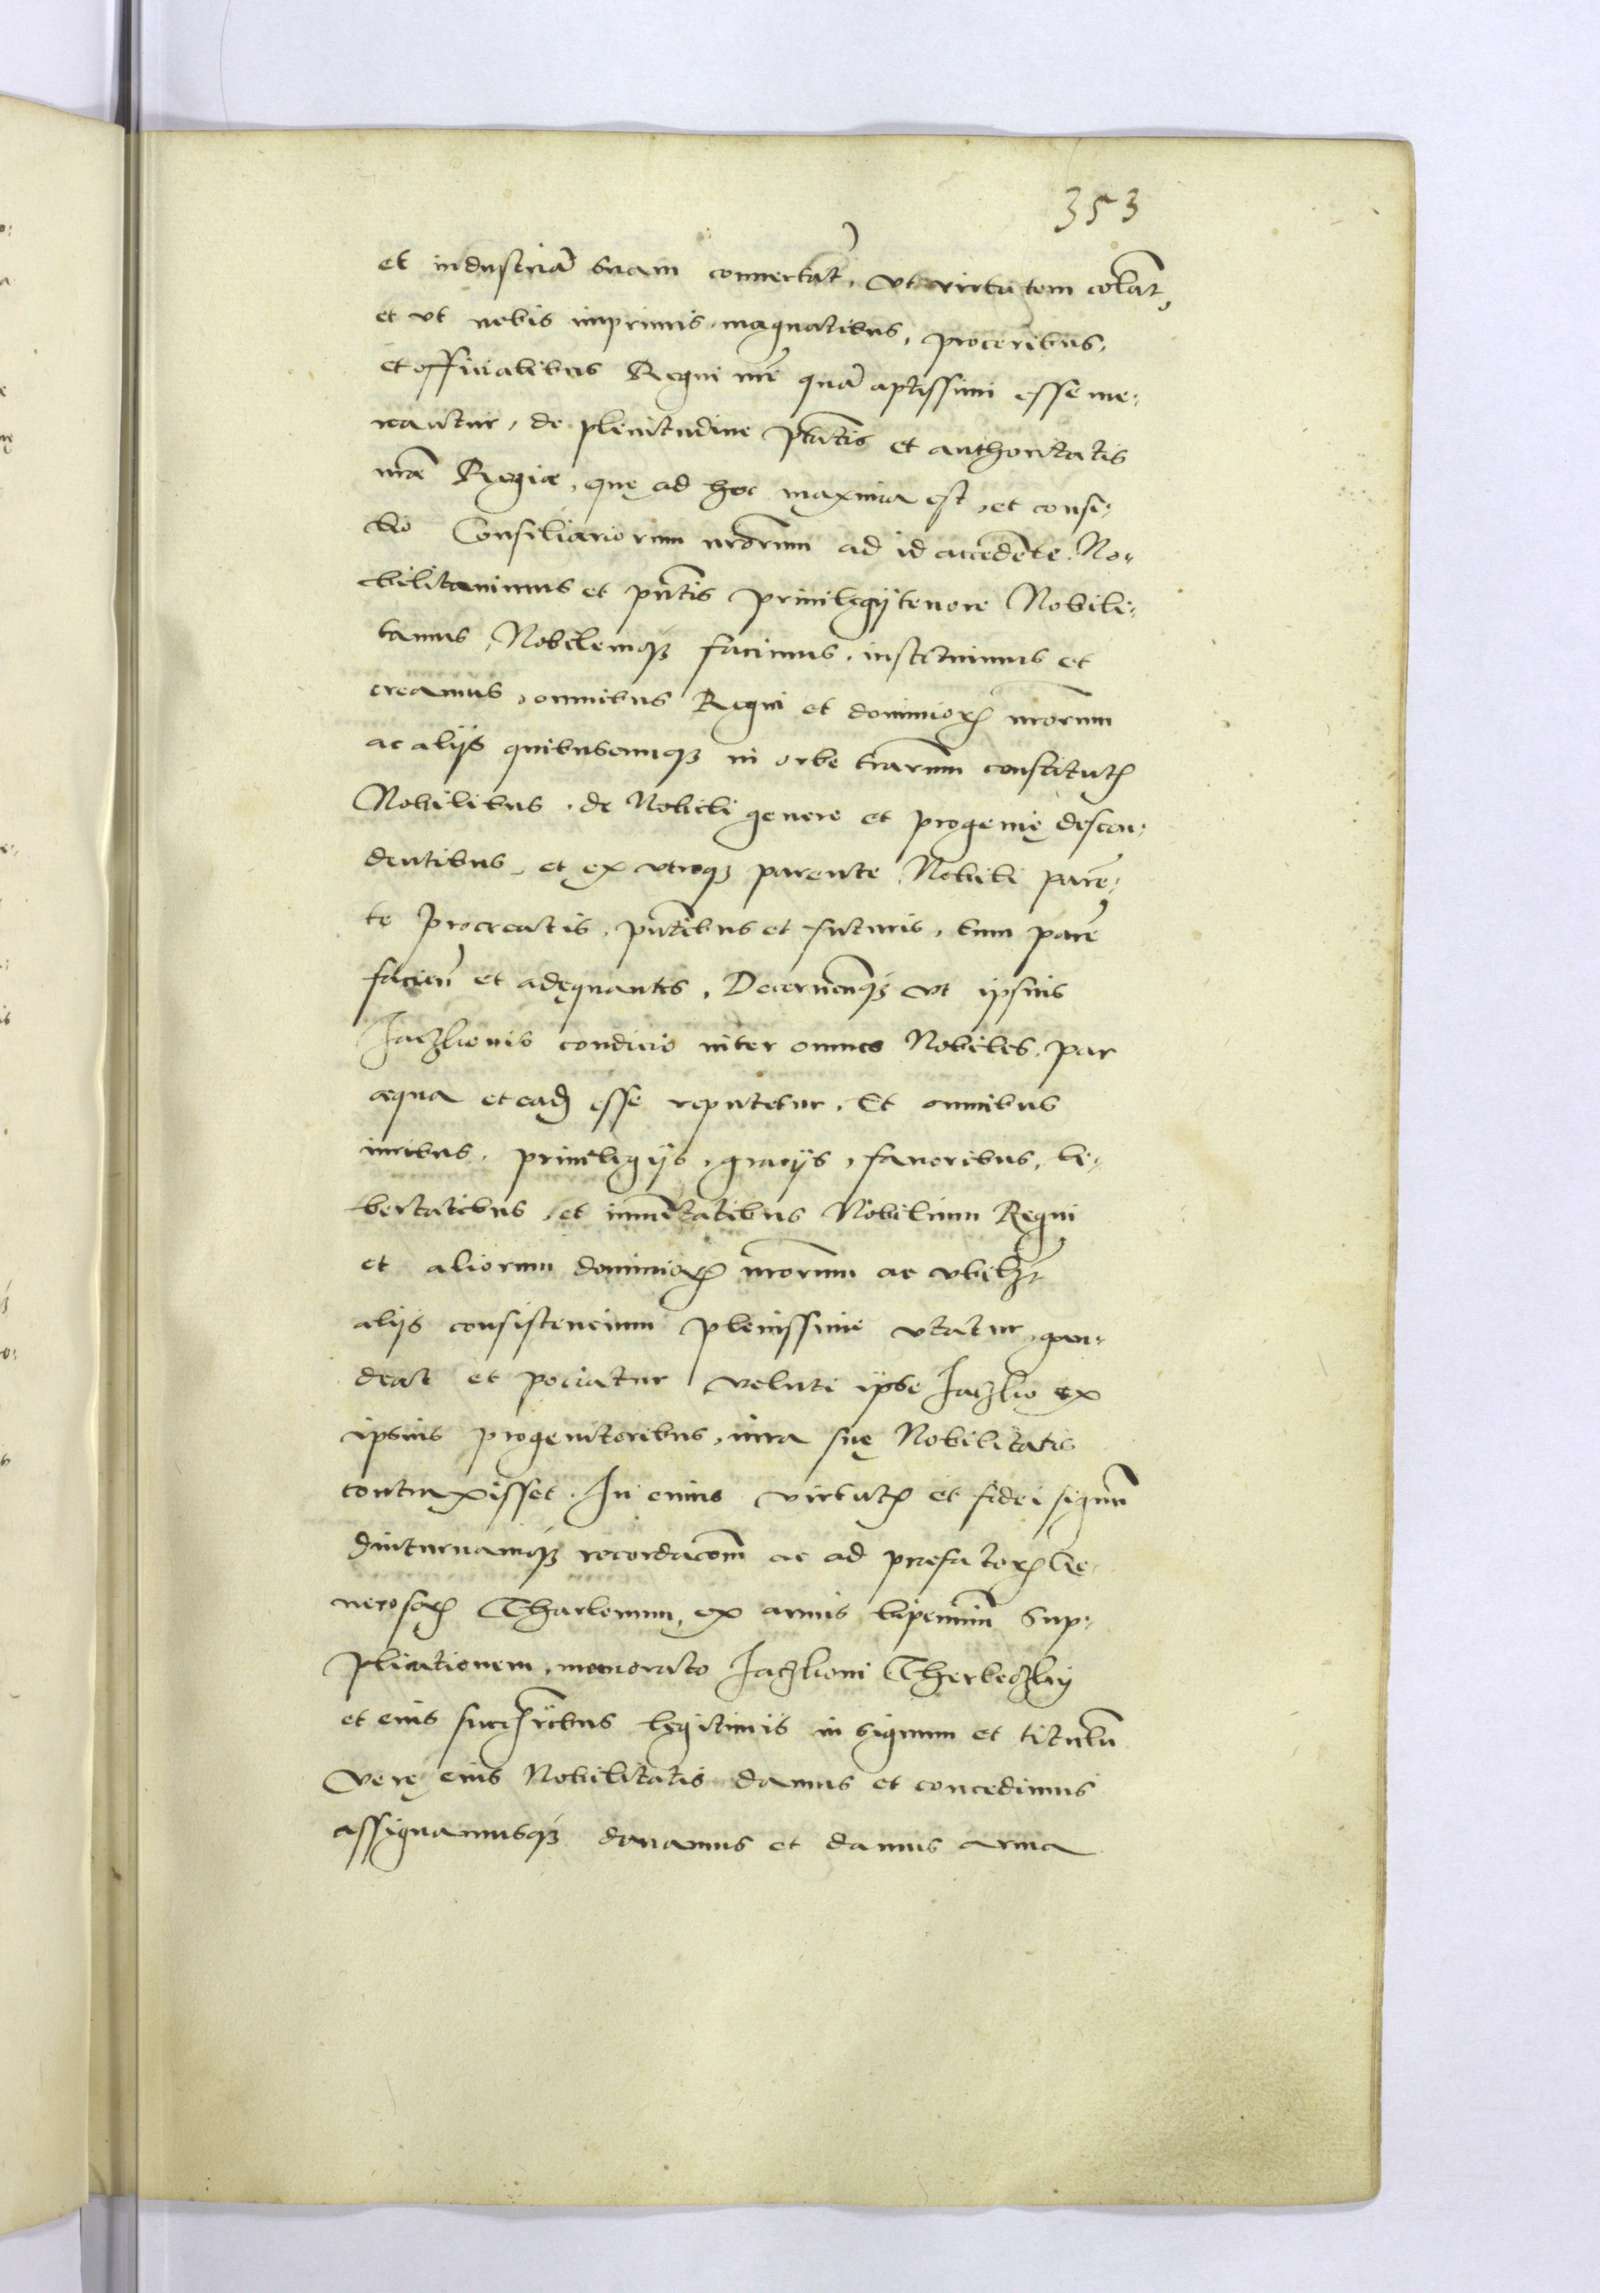 353
et industriã suam convertãt, ut virtutem colãt,
et ut nobis imprimis, magnatibus, proceribus,
et officialibus Regni nrĩ quã aptissimi esse me-
reantur, de plenitudine ptãtis et authoritatis
nrãe Regiæ, quę ad hoc maxima est, et consi-
lio Consiliariorum nrõrum ad id accedẽte. No-
bilitavimus et pñtis privilegij tenore Nobili-
tamus, Nobilemqȝ facimus, instituimus et
creamus, omnibus Regni et dominioꝝ nrõrum
ac alijs quibuscumqȝ in orbe trãrum constitutꝭ
Nobilibus, de Nobili genere et progenię descen-
dentibus, et ex utroqȝ parente Nobili paren-
te procreatis, pñtibus et futuris, eum parẽ
facieñ et adęquantes, Decerneñqȝ ut ipsius
Jaczkonis condicio inter omnes Nobiles, par
æqua et eadẽ esse reputetur, Et omnibus
iuribus, privilegijs, gracijs, favoribus, li-
bertatibus, et immũitatibus Nobilium Regni
et aliorum dominioꝝ nrõrum ac ubilȝt
alijs consistencium plenissime utatur, gau-
deat et pociatur veluti ipse Jaczko ex
ipsius progenitoribus, iura suę Nobilitatis
contraxisset. In cuius virtutꝭ et fidei signũ
diuturnamqȝ recordacõm ac ad præfatoꝝ Ge-
nerosoꝝ Charlomum, ex armis bipennium sup-
plicationem, memorato Jaczkoni Therleczkij
et eius succẽribus legitimis in signum et titulũ
verę eius Nobilitatis damus et concedimus
assignamusqȝ donamus et damus arma